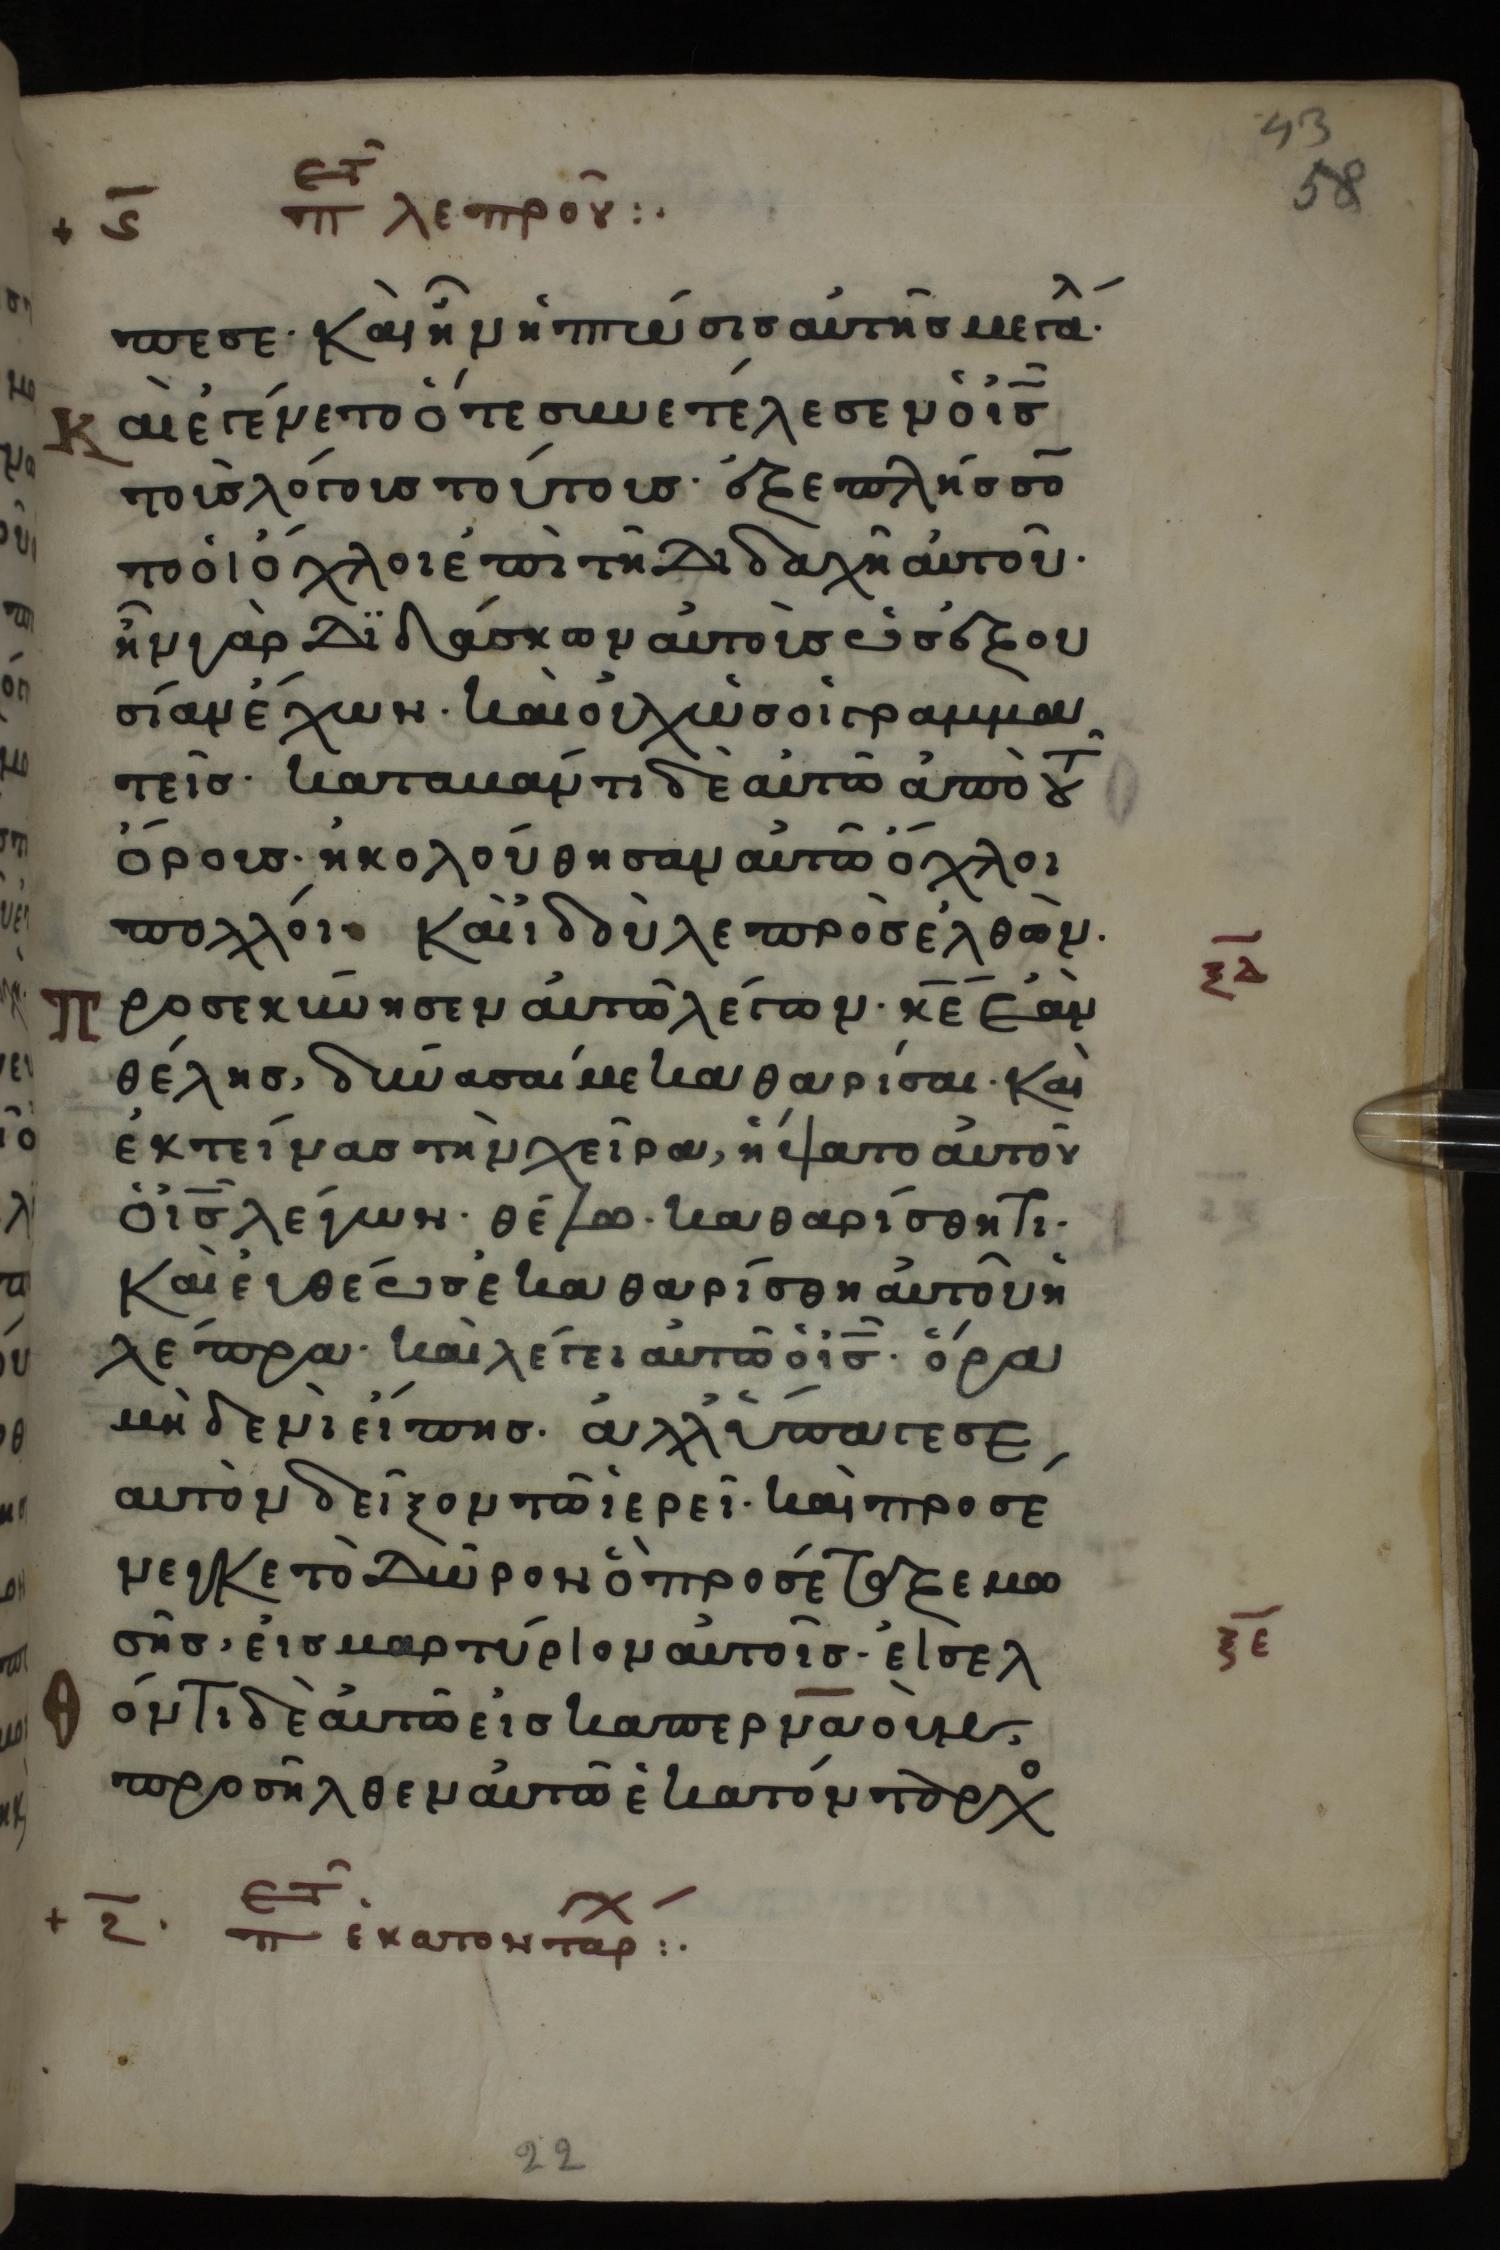 43
58
+ ϛ̅ π ετ λεπροῦ:.
πεσε· καὶ ἦν ἡ πτώσις αὐτῆς μεγάλ·
Καὶ ἐγένετο ὅτε συνετέλεσεν ὁ ἰς̅
τοὺς λόγους τούτους· ἐξεπλήσσο
το οἱ ὄχλοι ἐπὶ τῆ διδαχῆ αὐτοῦ·
ἦν γὰρ διδάσκων αὐτοὺς ὡς ἐξου
σίαν ἔχων· καὶ οὐχ ὡς οἱ γραμμα
τεῖς· καταβάντι δὲ αὐτῶ ἀπὸ τοῦ
ὄρους· ἠκολούθησαν αὐτῶ ὄχλοι
πολλοί· καὶ ἰδοὺ λεπρὸς ἐλθὼν·
ξδ̅
Προσεκύνησεν αὐτῶ λέγων· κ̅ε̅ ἐὰν
θέλης, δύνασαί με καθαρίσαι· καὶ
ἐκτείνας τὴν χεῖρα, ἥψατο αὐτοῦ
ὁ ἰς̅ λέγων· θέλω· καθαρίσθητι·
καὶ εὐθέως ἐκαθαρίσθη αὐτοῦ ἡ
λέπρα· καὶ λέγει αὐτῶ ὁ ἰς̅· ὅρα
μὴδενὶ εἴπης· ἀλλ' ὕπαγε σε
αυτὸν δεῖξον τῶ ἱερεῖ· καὶ προσέ
νεγκε τὸ δῶρον ὃ προσέταξε μω
σῆς, εἰς μαρτύριον αὐτοῖς· εἰσελ
ξε̅
Θόντι δὲ αὐτῶ εἰς καπερναοὺμ,
προσῆλθεν αὐτῶ ἑκατόνταρχο
+ ζ̅· π ετ· ἑκατονταρχ:.
22